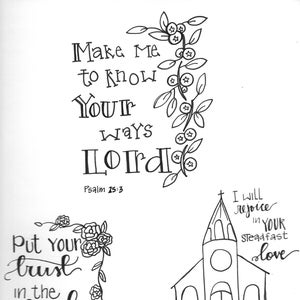 Make me
to know
Your
ways
Lord
Psalm 25:3
I will
rejoice
in YOUR
steadfast
love
Put Your
trust
in the